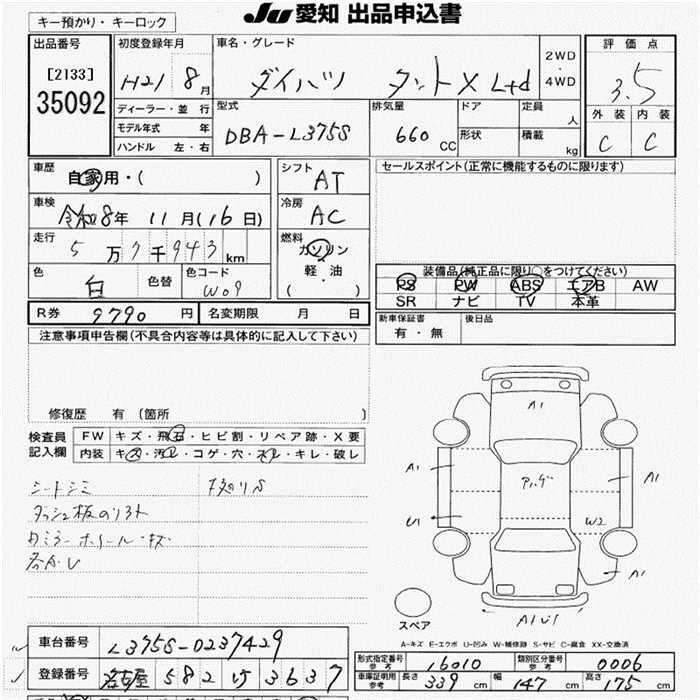 JU 愛知 出品申込書
キー預かり・キーロック
出品番号
[2133]
35092
初度登録年月
H21 8月
ディーラー・並行
モデル年式 年
ハンドル 左・右
車名・グレード
ダイハツ タントX Ltd
2WD
・
4WD
評価点
3.5
外装 内装
C C
型式
DBA-L375S
排気量
660 CC
ドア
形状
定員
人
積載
kg
車歴
自家用・( )
車検
令和8年 11月(16日)
走行
5万7千943km
色
白
色替
色コード
W09
シフト
AT
冷房
AC
燃料
ガソリン
軽・油
( )
セールスポイント(正常に機能するものに限ります)
装備品(純正品に限り○をつけてください)
PS PW ABS エアB AW
SR ナビ TV 本革
R券 9790円
名変期限 月 日
新車保証書
有・無
後日品
注意事項申告欄(不具合内容等は具体的に記入して下さい)
修復歴 有(箇所 )
検査員
記入欄
FW キズ・飛石・ヒビ割・リペア跡・X要
内装 キズ・汚レ・コゲ・穴・スレ・キレ・破レ
シートシミ
ダッシュ板のリフト
A1
A1
A1
U1
W2
A1
A1U1
スペア
A-キズ E-エクボ U-凹み W-補修跡 S-サビ C-腐食 XX-交換済
車台番号 L375S-0237429
登録番号 名古屋 582 い 3637
形式指定番号
参考
16010
類別区分番号
参考
0006
車庫証明用
参考
長さ 339cm 幅 147cm 高さ 175cm